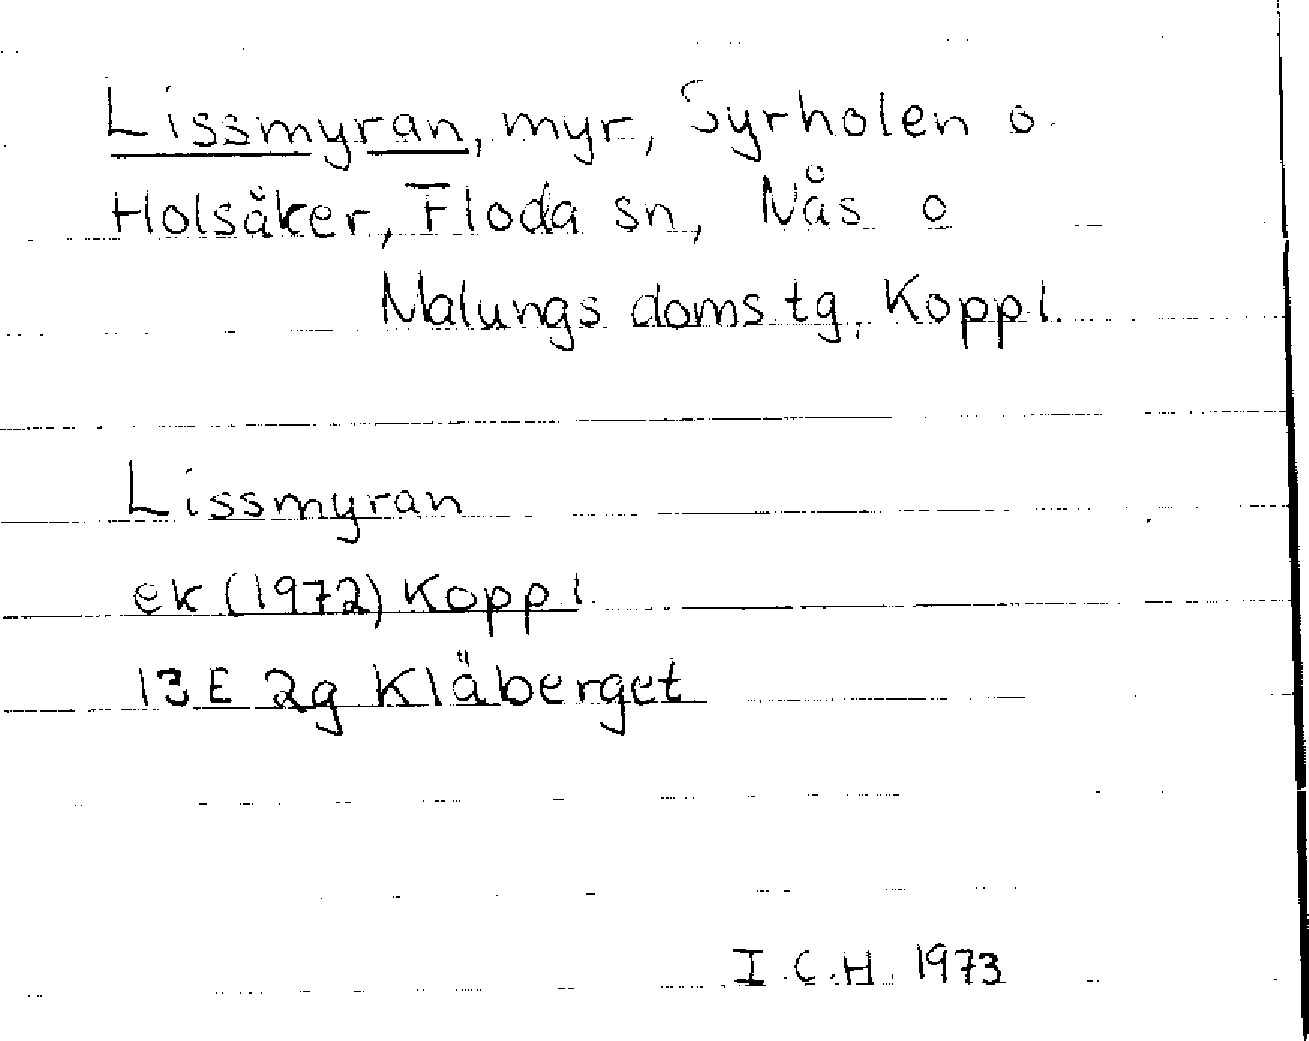 Lissmyran, myr, Syrholen o
Holsåker, Floda sn, Nås o
Malungs domstg, Koppl.
Lissmyran
ek (1972) Koppl.
13E 2g Kläberget
I.C.H. 1973